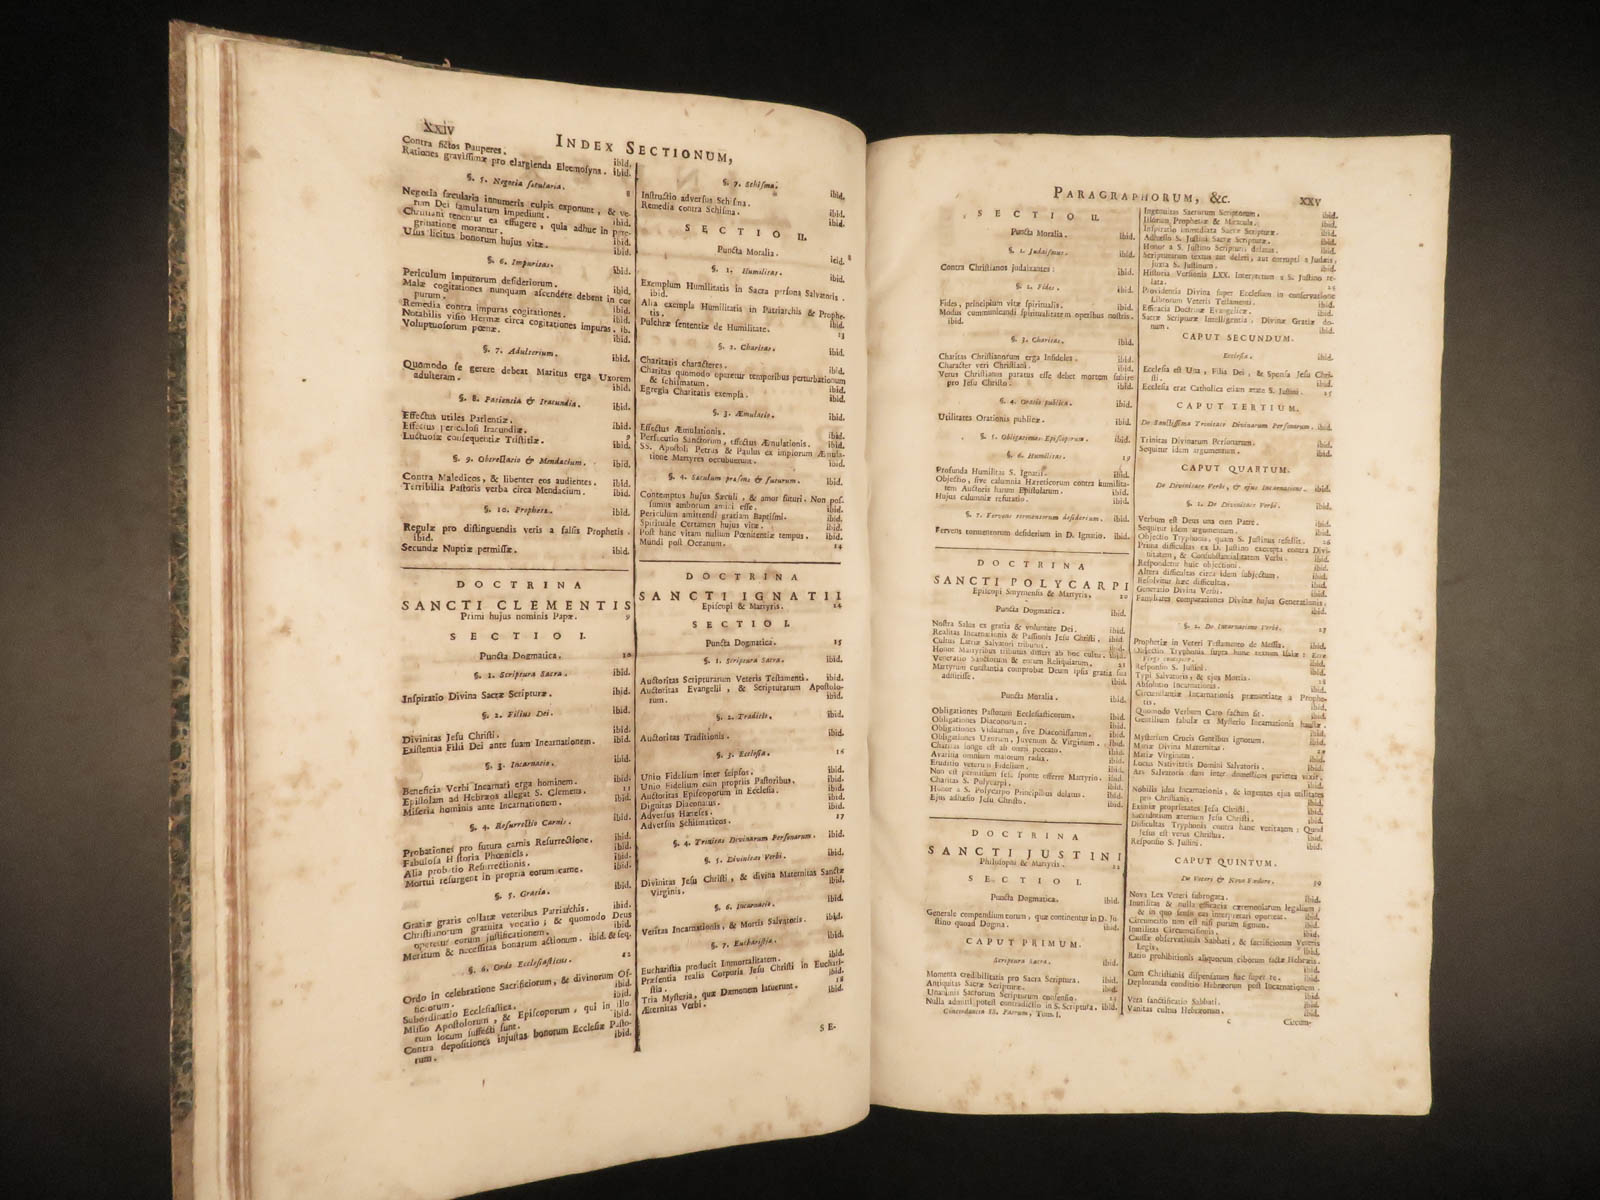 xxiv
INDEX SECTIONUM,
Contra fictos Pauperes. ibid.
Rationes gravissimæ pro elargienda Eleemosyna. ibid.
§. 5. Negotia sæcularia. 8
Negotia sæcularia innumeris culpis exponunt, & ve-
rum Dei famulatum impediunt. ibid.
Christiani tenentur ea effugere, quia adhuc in pere-
grinatione morantur. ibid.
Usus licitus bonorum hujus vitæ. ibid.
§. 6. Impuritas. ibid.
Periculum impurorum desideriorum. ibid.
Malæ cogitationes nunquam ascendere debent in cor
purum. ibid.
Remedia contra impuras cogitationes. ibid.
Notabilis visio Hermæ circa cogitationes impuras. ib.
Voluptuosorum pœnæ. ibid.
§. 7. Adulterium. ibid.
Quomodo se gerere debeat Maritus erga Uxorem
adulteram. ibid.
§. 8. Patientia & Iracundia. ibid.
Effectus utiles Patientiæ. ibid.
Effectus periculosi Iracundiæ. 9
Luctuosæ consequentiæ Tristitiæ. ibid.
§. 9. Obtrectatio & Mendacium. ibid.
Contra Maledicos, & libenter eos audientes. ibid.
Terribilia Pastoris verba circa Mendacium. ibid.
§. 10. Propheta. ibid.
Regulæ pro distinguendis veris a falsis Prophetis.
ibid.
Secundæ Nuptiæ permissæ. ibid.
DOCTRINA
SANCTI CLEMENTIS
Primi hujus nominis Papæ. 9
SECTIO I.
Puncta Dogmatica. 10
§. 1. Scriptura Sacra. ibid.
Inspiratio Divina Sacræ Scripturæ. ibid.
§. 2. Filius Dei. ibid.
Divinitas Jesu Christi. ibid.
Existentia Filii Dei ante suam Incarnationem. ibid.
§. 3. Incarnatio. ibid.
Beneficia Verbi Incarnati erga hominem. ibid.
Epistolam ad Hebræos allegat S. Clemens. 11
Miseria hominis ante Incarnationem. ibid.
§. 4. Resurrectio Carnis. ibid.
Probationes pro futura carnis Resurrectione. ibid.
Fabulosa Historia Phœnicis. ibid.
Alia probatio Resurrectionis. ibid.
Mortui resurgent in propria eorum carne. ibid.
§. 5. Gratia. ibid.
Gratiæ gratis collatæ veteribus Patriarchis. ibid.
Christianorum gratuita vocatio; & quomodo Deus
operetur eorum justificationem. ibid.
Meritum & necessitas bonarum actionum. ibid. & seq.
§. 6. Ordo Ecclesiasticus. 12
Ordo in celebratione Sacrificiorum, & divinorum Of-
ficiorum. ibid.
Subordinatio Ecclesiastica. ibid.
Missio Apostolorum, & Episcoporum, qui in illo-
rum locum suffecti sunt. ibid.
Contra depositiones injustas bonorum Ecclesiæ Pasto-
rum. ibid.
§. 7. Schisma. ibid.
Instructio adversus Schisma. ibid.
Remedia contra Schisma. ibid.
SECTIO II.
Puncta Moralia. ibid.
§. 1. Humilitas. ibid.
Exemplum Humilitatis in Sacra persona Salvatoris.
ibid.
Alia exempla Humilitatis in Patriarchis & Prophe-
tis. ibid.
Pulchræ sententiæ de Humilitate. 13
§. 2. Charitas. ibid.
Charitatis characteres. ibid.
Charitas quomodo operetur temporibus perturbationum
& schismatum. ibid.
Egregia Charitatis exempla. ibid.
§. 3. Æmulatio. ibid.
Effectus Æmulationis. ibid.
Persecutio Sanctorum, effectus Æmulationis. ibid.
SS. Apostoli Petrus & Paulus ex impiorum Æmula-
tione Martyres occubuerunt. ibid.
§. 4. Sæculum præsens & futurum. ibid.
Contemptus hujus Sæculi, & amor futuri. Non pos-
sumus amborum amici esse. ibid.
Periculum amittendi gratiam Baptismi. ibid.
Spirituale Certamen hujus vitæ. ibid.
Post hanc vitam nullum Pœnitentiæ tempus. ibid.
Mundi post Oceanum. 14
DOCTRINA
SANCTI IGNATII
Episcopi & Martyris. 14
SECTIO I.
Puncta Dogmatica. 15
§. 1. Scriptura Sacra. ibid.
Auctoritas Scripturarum Veteris Testamenti. ibid.
Auctoritas Evangelii, & Scripturarum Apostolo-
rum. ibid.
§. 2. Traditio. ibid.
Auctoritas Traditionis. ibid.
§. 3. Ecclesia. 16
Unio Fidelium inter seipsos. ibid.
Unio Fidelium cum propriis Pastoribus. ibid.
Auctoritas Episcoporum in Ecclesia. ibid.
Dignitas Diaconatus. ibid.
Adversus Hæreses. ibid.
Adversus Schismaticos. 17
§. 4. Trinitas Divinarum Personarum. ibid.
§. 5. Divinitas Verbi. ibid.
Divinitas Jesu Christi, & divina Maternitas Sanctæ
Virginis. ibid.
§. 6. Incarnatio. ibid.
Veritas Incarnationis, & Mortis Salvatoris. ibid.
§. 7. Eucharistia. ibid.
Eucharistia producit Immortalitatem. ibid.
Præsentia realis Corporis Jesu Christi in Euchari-
stia. ibid.
Tria Mysteria, quæ Dæmonem latuerunt. 18
Æternitas Verbi. ibid.
SE-
PARAGRAPHORUM, &c. xxv
SECTIO II.
Puncta Moralia. ibid.
§. 1. Judaismus. ibid.
Contra Christianos judaizantes: ibid.
§. 2. Fides. ibid.
Fides, principium vitæ spiritualis. ibid.
Modus communicandi spiritualitatem operibus nostris.
ibid.
§. 3. Charitas. ibid.
Charitas Christianorum erga Infideles. ibid.
Character veri Christiani. ibid.
Verus Christianus paratus esse debet mortem subire
pro Jesu Christo. ibid.
§. 4. Oratio publica. ibid.
Utilitates Orationis publicæ. ibid.
§. 5. Obligationes Episcoporum. ibid.
§. 6. Humilitas. 19
Profunda Humilitas S. Ignatii. ibid.
Objectio, sive calumnia Hæreticorum contra humilita-
tem Auctoris harum Epistolarum. ibid.
Hujus calumniæ refutatio. ibid.
§. 7. Fervens tormentorum desiderium. ibid.
Fervens tormentorum desiderium in D. Ignatio. ibid.
DOCTRINA
SANCTI POLYCARPI
Episcopi Smyrnensis & Martyris. 20
Puncta Dogmatica. ibid.
Nostra Salus ex gratia & voluntate Dei. ibid.
Realitas Incarnationis & Passionis Jesu Christi. ibid.
Cultus Latriæ Salvatori tributus. ibid.
Honor Martyribus tributus differt ab hoc cultu. ibid.
Veneratio Sanctorum & eorum Reliquiarum. 21
Martyrum constantia comprobat Deum ipsis gratia sua
adstitisse. ibid.
Puncta Moralia. ibid.
Obligationes Pastorum Ecclesiasticorum. ibid.
Obligationes Diaconorum. ibid.
Obligationes Viduarum, sive Diaconissarum. ibid.
Obligationes Uxorum, Juvenum & Virginum. ibid.
Charitas longe est ab omni peccato. ibid.
Avaritia omnium malorum radix. ibid.
Eruditio veterum Fidelium. ibid.
Non est permissum sese sponte offerre Martyrio. ibid.
Charitas S. Polycarpi. ibid.
Honor a S. Polycarpo Principibus delatus. ibid.
Ejus adhæsio Jesu Christo. ibid.
DOCTRINA
SANCTI JUSTINI
Philosophi & Martyris. 22
SECTIO I.
Puncta Dogmatica. ibid.
Generale compendium eorum, quæ continentur in D. Ju-
stino quoad Dogma. ibid.
CAPUT PRIMUM.
Scriptura Sacra. ibid.
Momenta credibilitatis pro Sacra Scriptura. ibid.
Antiquitas Sacræ Scripturæ. ibid.
Unanimis Sacrorum Scriptorum consensio. 23
Nulla admitti potest contradictio in S. Scriptura. ibid.
Concordantia SS. Patrum, Tom. I.
Ingenuitas Sacrorum Scriptorum. ibid.
Illorum Prophetiæ & Miracula. ibid.
Inspiratio immediata Sacræ Scripturæ. ibid.
Adhæsio S. Justini Sacræ Scripturæ. ibid.
Honor a S. Justino Scripturis delatus. ibid.
Scripturarum textus aut deleti, aut corrupti a Judæis,
juxta S. Justinum. ibid.
Historia Versionis LXX. Interpretum a S. Justino re-
lata. ibid.
Providentia Divina super Ecclesiam in conservatione
Librorum Veteris Testamenti. ibid.
Efficacia Doctrinæ Evangelicæ. ibid.
Sacræ Scripturæ Intelligentia, Divinæ Gratiæ do-
num. ibid.
CAPUT SECUNDUM.
Ecclesia. ibid.
Ecclesia est Una, Filia Dei, & Sponsa Jesu Chri-
sti. ibid.
Ecclesia erat Catholica etiam ætate S. Justini. 25
CAPUT TERTIUM.
De Sanctissima Trinitate Divinarum Personarum. ibid.
Trinitas Divinarum Personarum. ibid.
Sequitur idem argumentum. ibid.
CAPUT QUARTUM.
De Divinitate Verbi, & ejus Incarnatione. ibid.
§. 1. De Divinitate Verbi. ibid.
Verbum est Deus una cum Patre. ibid.
Sequitur idem argumentum. ibid.
Objectio Tryphonis, quam S. Justinus refellit. 26
Prima difficultas ex D. Justino excepta contra Divi-
nitatem, & Consubstantialitatem Verbi. ibid.
Respondetur huic objectioni. ibid.
Altera difficultas circa idem subjectum. ibid.
Resolvitur hæc difficultas. ibid.
Generatio Divina Verbi. ibid.
Familiares comparationes Divinæ hujus Generationis.
ibid.
§. 2. De Incarnatione Verbi. 27
Prophetiæ in Veteri Testamento de Messia. ibid.
Objectio Tryphonis supra hunc textum Isaiæ: Ecce
Virgo concipiet. ibid.
Responsio S. Justini. ibid.
Typi Salvatoris, & ejus Mortis. ibid.
Absolutio Incarnationis. 28
Circumstantiæ Incarnationis prænuntiatæ a Prophe-
tis. ibid.
Quomodo Verbum Caro factum sit. ibid.
Gentilium fabulæ ex Mysterio Incarnationis haustæ.
ibid.
Mysterium Crucis Gentibus ignotum. ibid.
Mariæ Divina Maternitas. 29
Mariæ Virginitas. ibid.
Locus Nativitatis Domini Salvatoris. ibid.
Ars Salvatoris dum inter domesticos parietes vixit.
ibid.
Nobilis idea Incarnationis, & ingentes ejus utilitates
pro Christianis. ibid.
Eximiæ proprietates Jesu Christi. ibid.
Sacerdotium æternum Jesu Christi. ibid.
Difficultas Tryphonis contra hanc veritatem: Quod
Jesus est verus Christus. ibid.
Responsio S. Justini. ibid.
CAPUT QUINTUM.
De Veteri, & Novo Fœdere. 30
Nova Lex Veteri subrogata. ibid.
Inutilitas & nulla efficacia cæremoniarum legalium;
& in quo sensu eas interpretari oporteat. ibid.
Circumcisio non est nisi purum signum. ibid.
Inutilitas Circumcisionis. ibid.
Causæ observationis Sabbati, & sacrificiorum Veteris
Legis. ibid.
Ratio prohibitionis aliquorum ciborum factæ Hebræis.
ibid.
Cum Christianis dispensatum fuit super re. ibid.
Deploranda conditio Hebræorum post Incarnationem.
ibid.
Vera sanctificatio Sabbati. ibid.
Vanitas cultus Hebræorum. ibid.
c Circum-